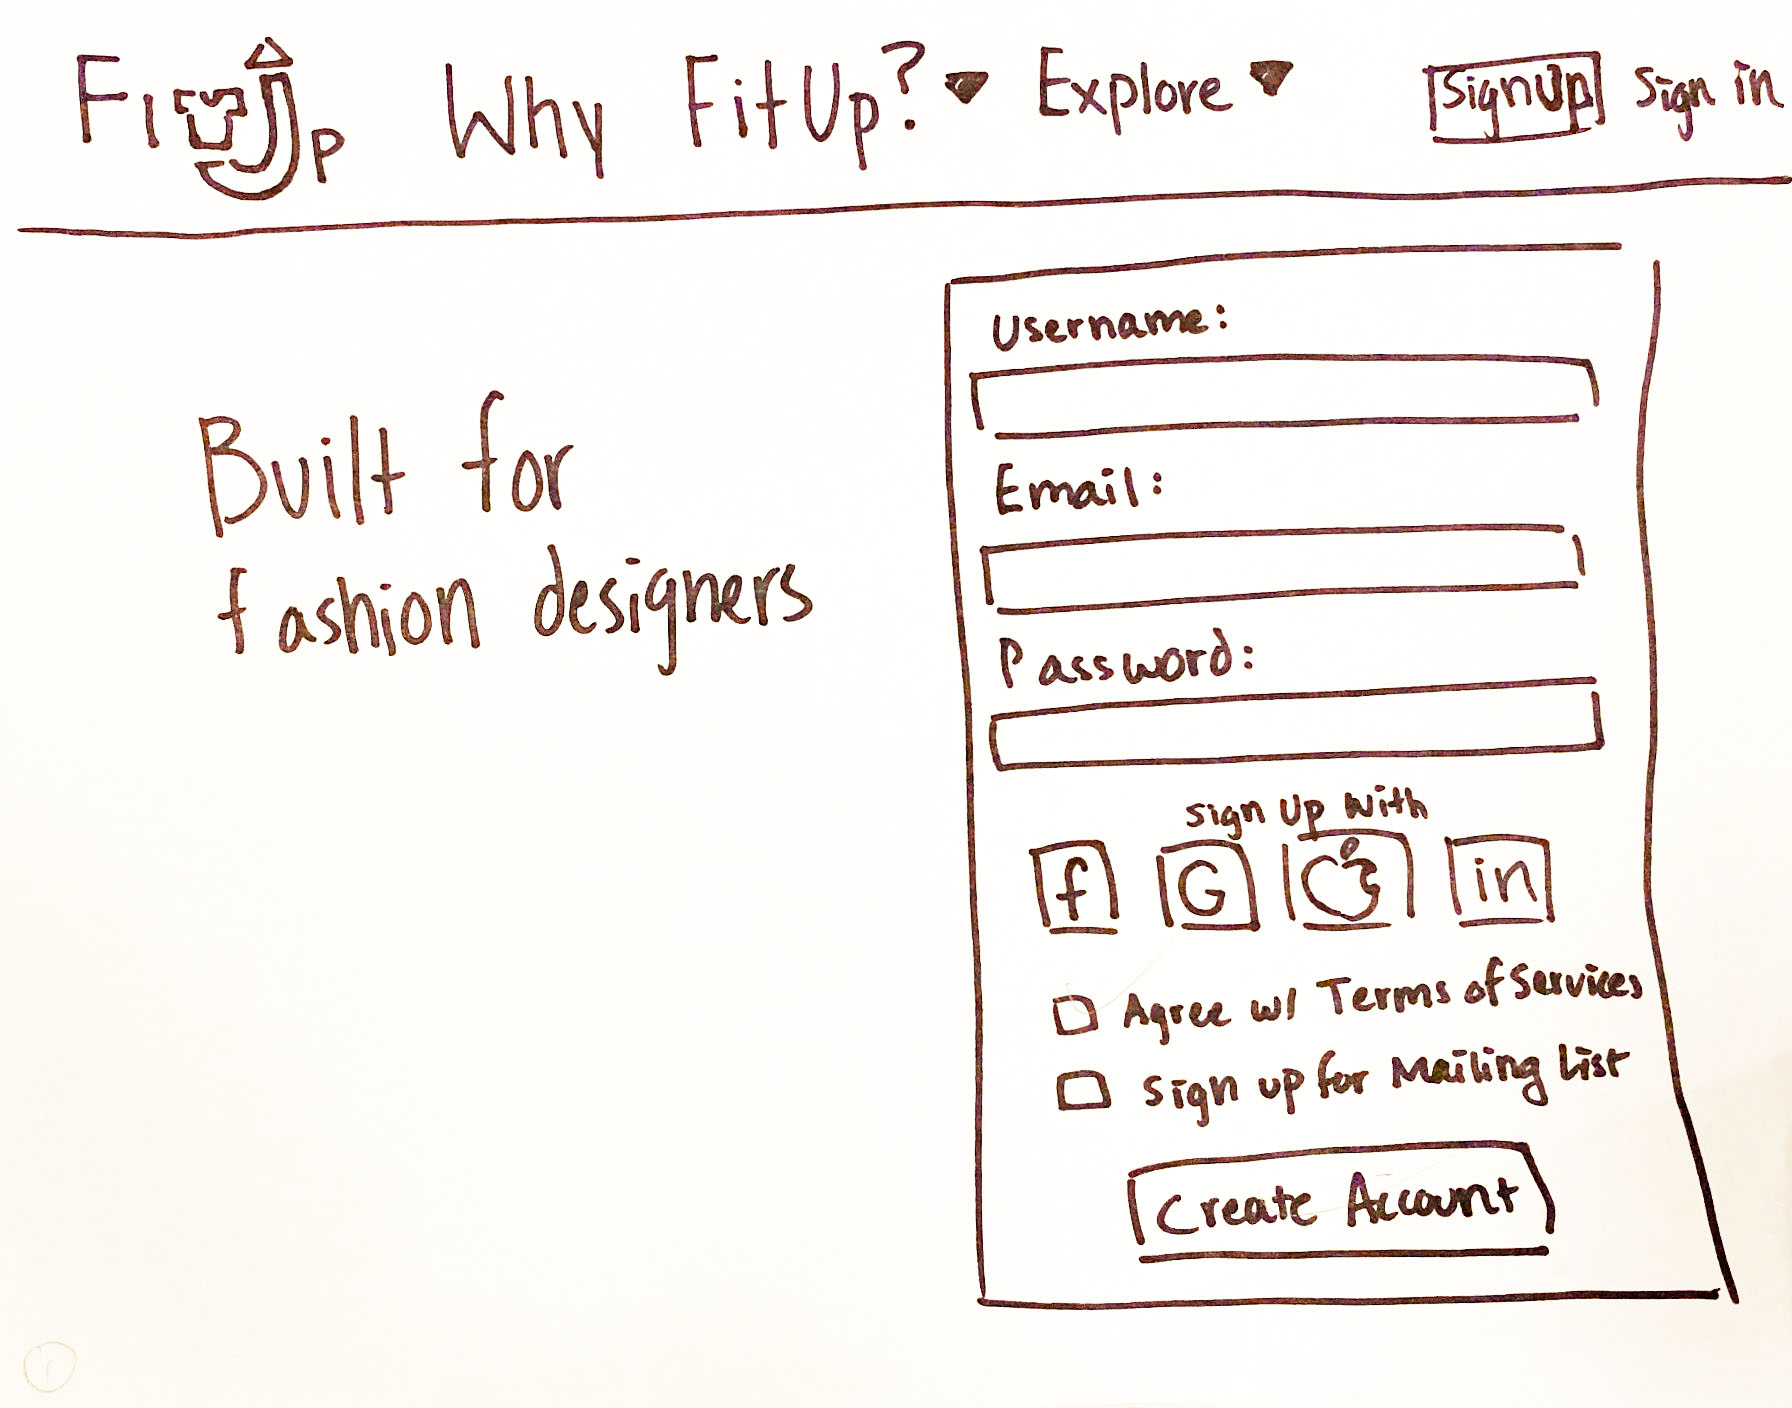 Fi p Why FitUp? Explore SignUp Sign in
Username:
Built for
fashion designers
Email:
Password:
Sign Up With
f G in
Agree w/ Terms of Services
Sign up for Mailing List
Create Account